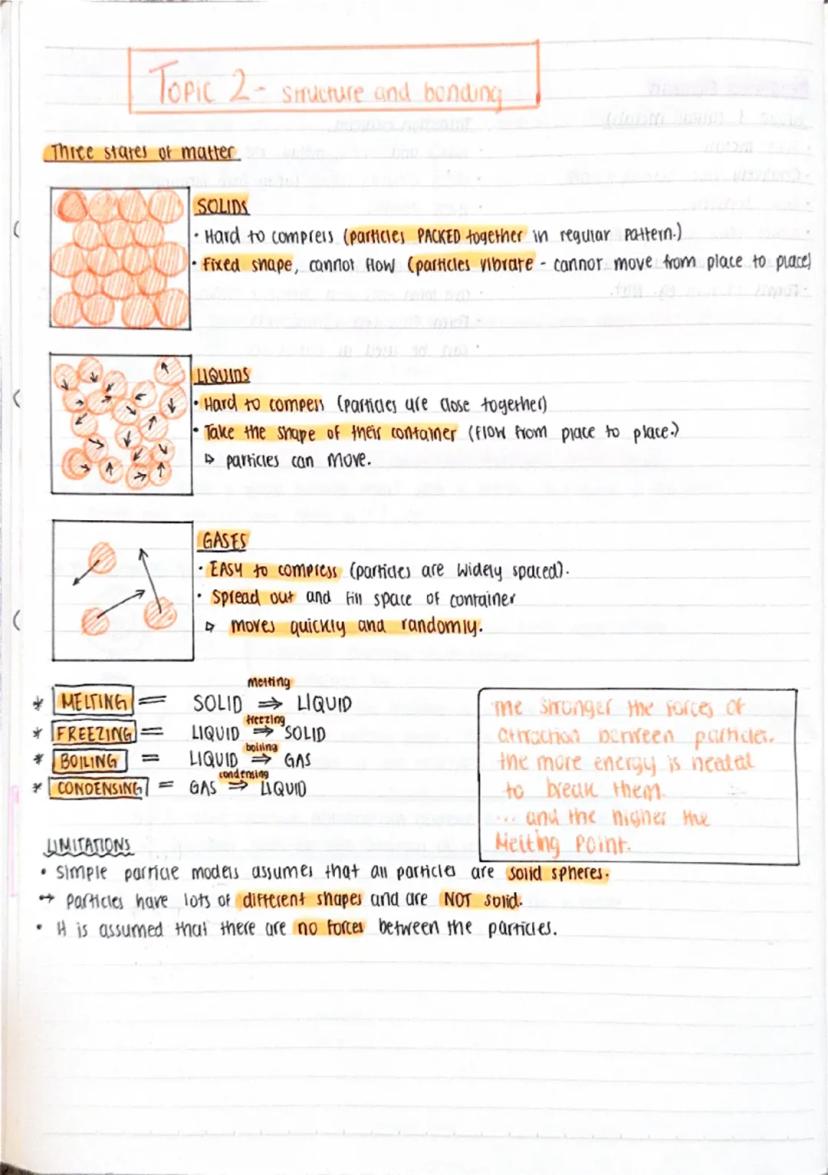 Topic 2 - structure and bonding
Three states of matter
SOLIDS
• Hard to compress (particles PACKED together in regular pattern.)
• Fixed shape, cannot flow (particles vibrate - cannot move from place to place)
LIQUIDS
• Hard to compess (particles are close together)
• Take the shape of their container (flow from place to place.)
↳ particles can move.
GASES
• EASY to compress (particles are widely spaced).
• Spread out and fill space of container
↳ moves quickly and randomly.
melting
* MELTING = SOLID ⇒ LIQUID
freezing
* FREEZING = LIQUID ⇒ SOLID
boiling
* BOILING = LIQUID ⇒ GAS
condensing
* CONDENSING = GAS ⇒ LIQUID
The stronger the forces of
attraction between particles.
the more energy is needed
to break them
... and the higher the
Melting Point.
LIMITATIONS
• Simple particle models assumes that all particles are solid spheres.
↪ Particles have lots of different shapes and are NOT solid.
• It is assumed that there are no forces between the particles.